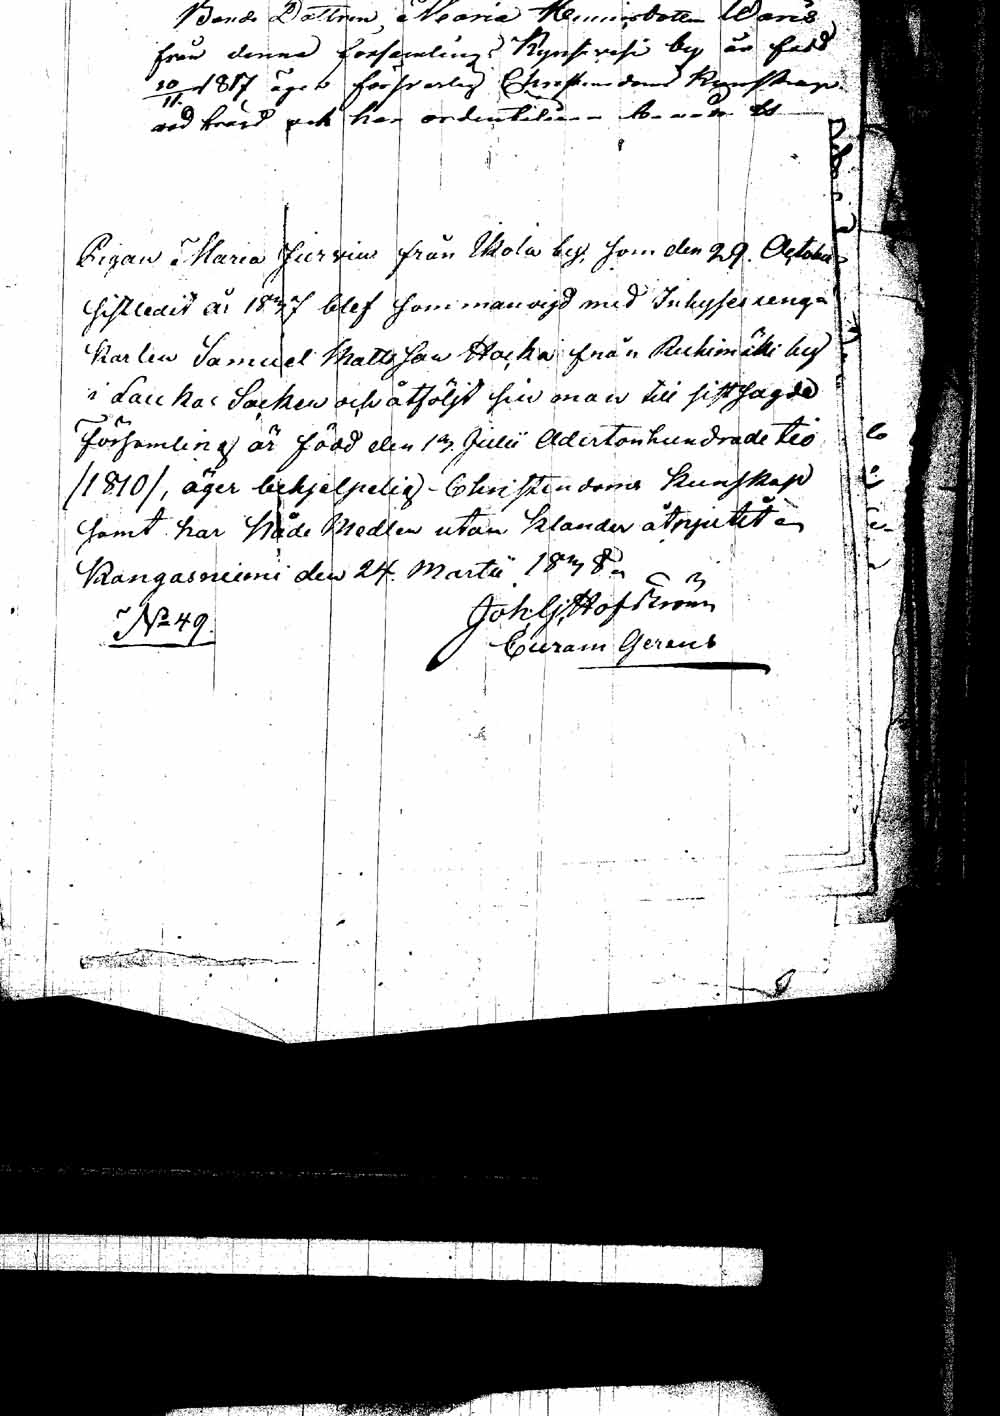 Bonde Dottren Maria Henricsdotter Waris
från denna församling Kynsivesi by är född
10/11 1817 äger försvarlig Christendoms Kunskap
ock har ordentligen
Pigan Maria från Ukola by, som den 29. October
sistledit år 1837 blef sammanvigd med Inhysesdrengs
Karlen Samuel Mattsson Hocka från Ruhimäki by
i Laukas Socken och åtföljt sin man till sistsagde
Församling är född den 13 Julii Adertonhundrade tio
/1810/, äger behjelpelig Christendoms Kunskap
samt har Nåde Medlen utan klander åtnjutit
Kangasniemi den 24. Martii 1838
Joh. G. Hofström
Curam Gerens
No 49.